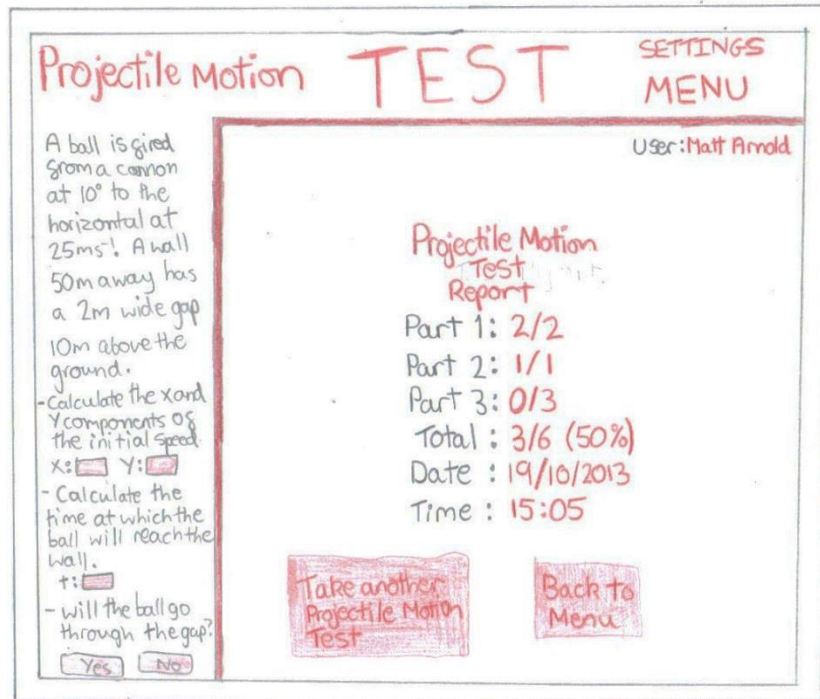 Projectile Motion TEST SETTINGS
MENU
A ball is gired
grom a cannon
at 10° to the
horizontal at
25ms⁻¹. A wall
50m away has
a 2m wide gap
10m above the
ground.
- Calculate the x and
y components of
the initial speed.
X: Y:
- Calculate the
time at which the
ball will reach the
wall.
t:
- will the ball go
through the gap?
Yes No
User: Matt Arnold
Projectile Motion
Test
Report
Part 1: 2/2
Part 2: 1/1
Part 3: 0/3
Total : 3/6 (50%)
Date : 19/10/2013
Time : 15:05
Take another
Projectile Motion
Test
Back to
Menu